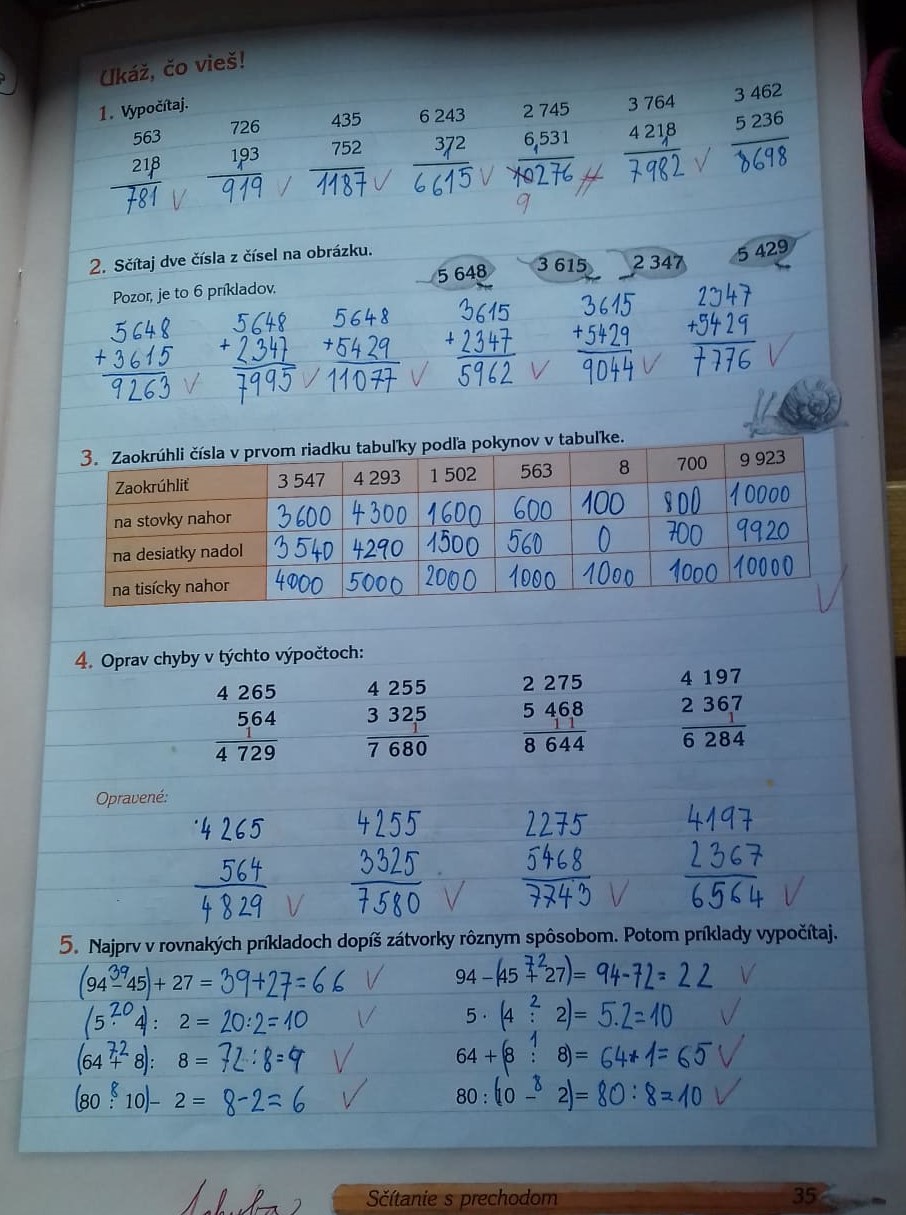 Ukáž, čo vieš!
1. Vypočítaj.
563 726 435 6 243 2 745 3 764 3 462
218 193 752 372 6 531 4 218 5 236
781 919 1187 6615 10276 7982 8698
9
2. Sčítaj dve čísla z čísel na obrázku.
5 648 3 615 2 347 5 429
Pozor, je to 6 príkladov.
5648 5648 5648 3615 3615 2347
+3615 +2347 +5429 +2347 +5429 +5429
9263 7995 11077 5962 9044 7776
3. Zaokrúhli čísla v prvom riadku tabuľky podľa pokynov v tabuľke.
Zaokrúhliť 3 547 4 293 1 502 563 8 700 9 923
na stovky nahor 3600 4300 1600 600 100 800 10000
na desiatky nadol 3540 4290 1500 560 0 700 9920
na tisícky nahor 4000 5000 2000 1000 1000 1000 10000
4. Oprav chyby v týchto výpočtoch:
4 265 4 255 2 275 4 197
564 3 325 5 468 2 367
1 1 1 1 1
4 729 7 680 8 644 6 284
Opravené:
4265 4255 2275 4197
564 3325 5468 2367
4829 7580 7743 6564
5. Najprv v rovnakých príkladoch dopíš zátvorky rôznym spôsobom. Potom príklady vypočítaj.
39 72
(94 – 45) + 27 = 39+27=66 94 – (45 + 27) = 94-72=22
20 2
(5 · 4) : 2 = 20:2=10 5 · (4 : 2) = 5.2=10
72 1
(64 + 8) : 8 = 72:8=9 64 + (8 : 8) = 64+1=65
8 8
(80 : 10) – 2 = 8-2=6 80 : (10 – 2) = 80:8=10
Sčítanie s prechodom 35